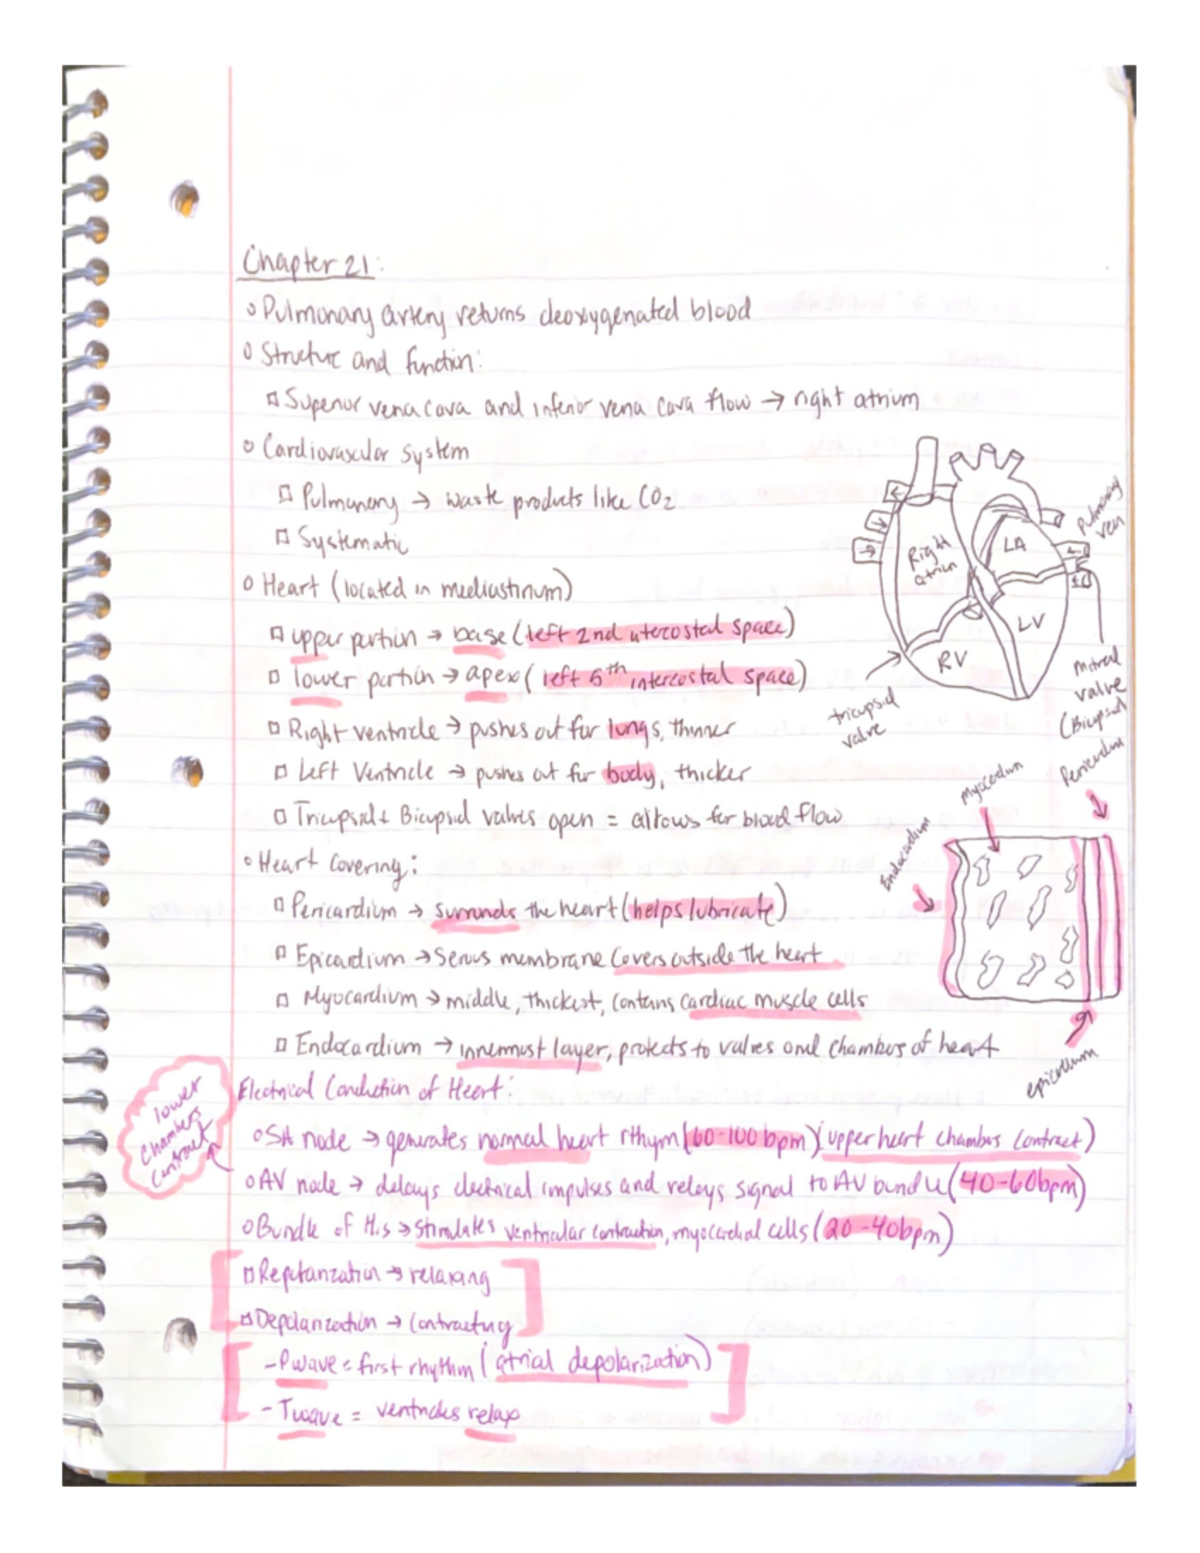 Chapter 21:
Pulmonary artery returns deoxygenated blood
Structure and function:
Superior vena cava and inferior vena cava flow → right atrium
Cardiovascular system
Pulmonary → waste products like CO2
Systematic
Heart (located in mediastinum)
upper portion → base (left 2nd intercostal space)
lower portion → apex (left 5th intercostal space)
Right ventricle → pushes out for lungs, thinner
Left Ventricle → pushes out for body, thicker
Tricupsid + Bicupsid valves open = allows for blood flow
Heart Covering:
Pericardium → surrounds the heart (helps lubricate)
Epicardium → Serous membrane covers outside the heart
Myocardium → middle, thickest, contains cardiac muscle cells
Endocardium → innermost layer, protects to valves and chambers of heart
Electrical Conduction of Heart:
SA node → generates normal heart rthym (60-100 bpm) (upper heart chambers contract)
AV node → delays electrical impulses and relays signal to AV bundle (40-60bpm)
Bundle of His → stimulates ventricular contraction, myocardial cells (20-40bpm)
Repolarization → relaxing
Depolarization → contracting
- P wave = first rhythm (atrial depolarization)
- T wave = ventricles relax
lower
chambers
contract
Right
atrium
LA
LV
RV
Pulmonary
vein
tricupsid
valve
Mitral
valve
(Bicupsid
Endocardium
Myocardium
Pericardium
epicardium